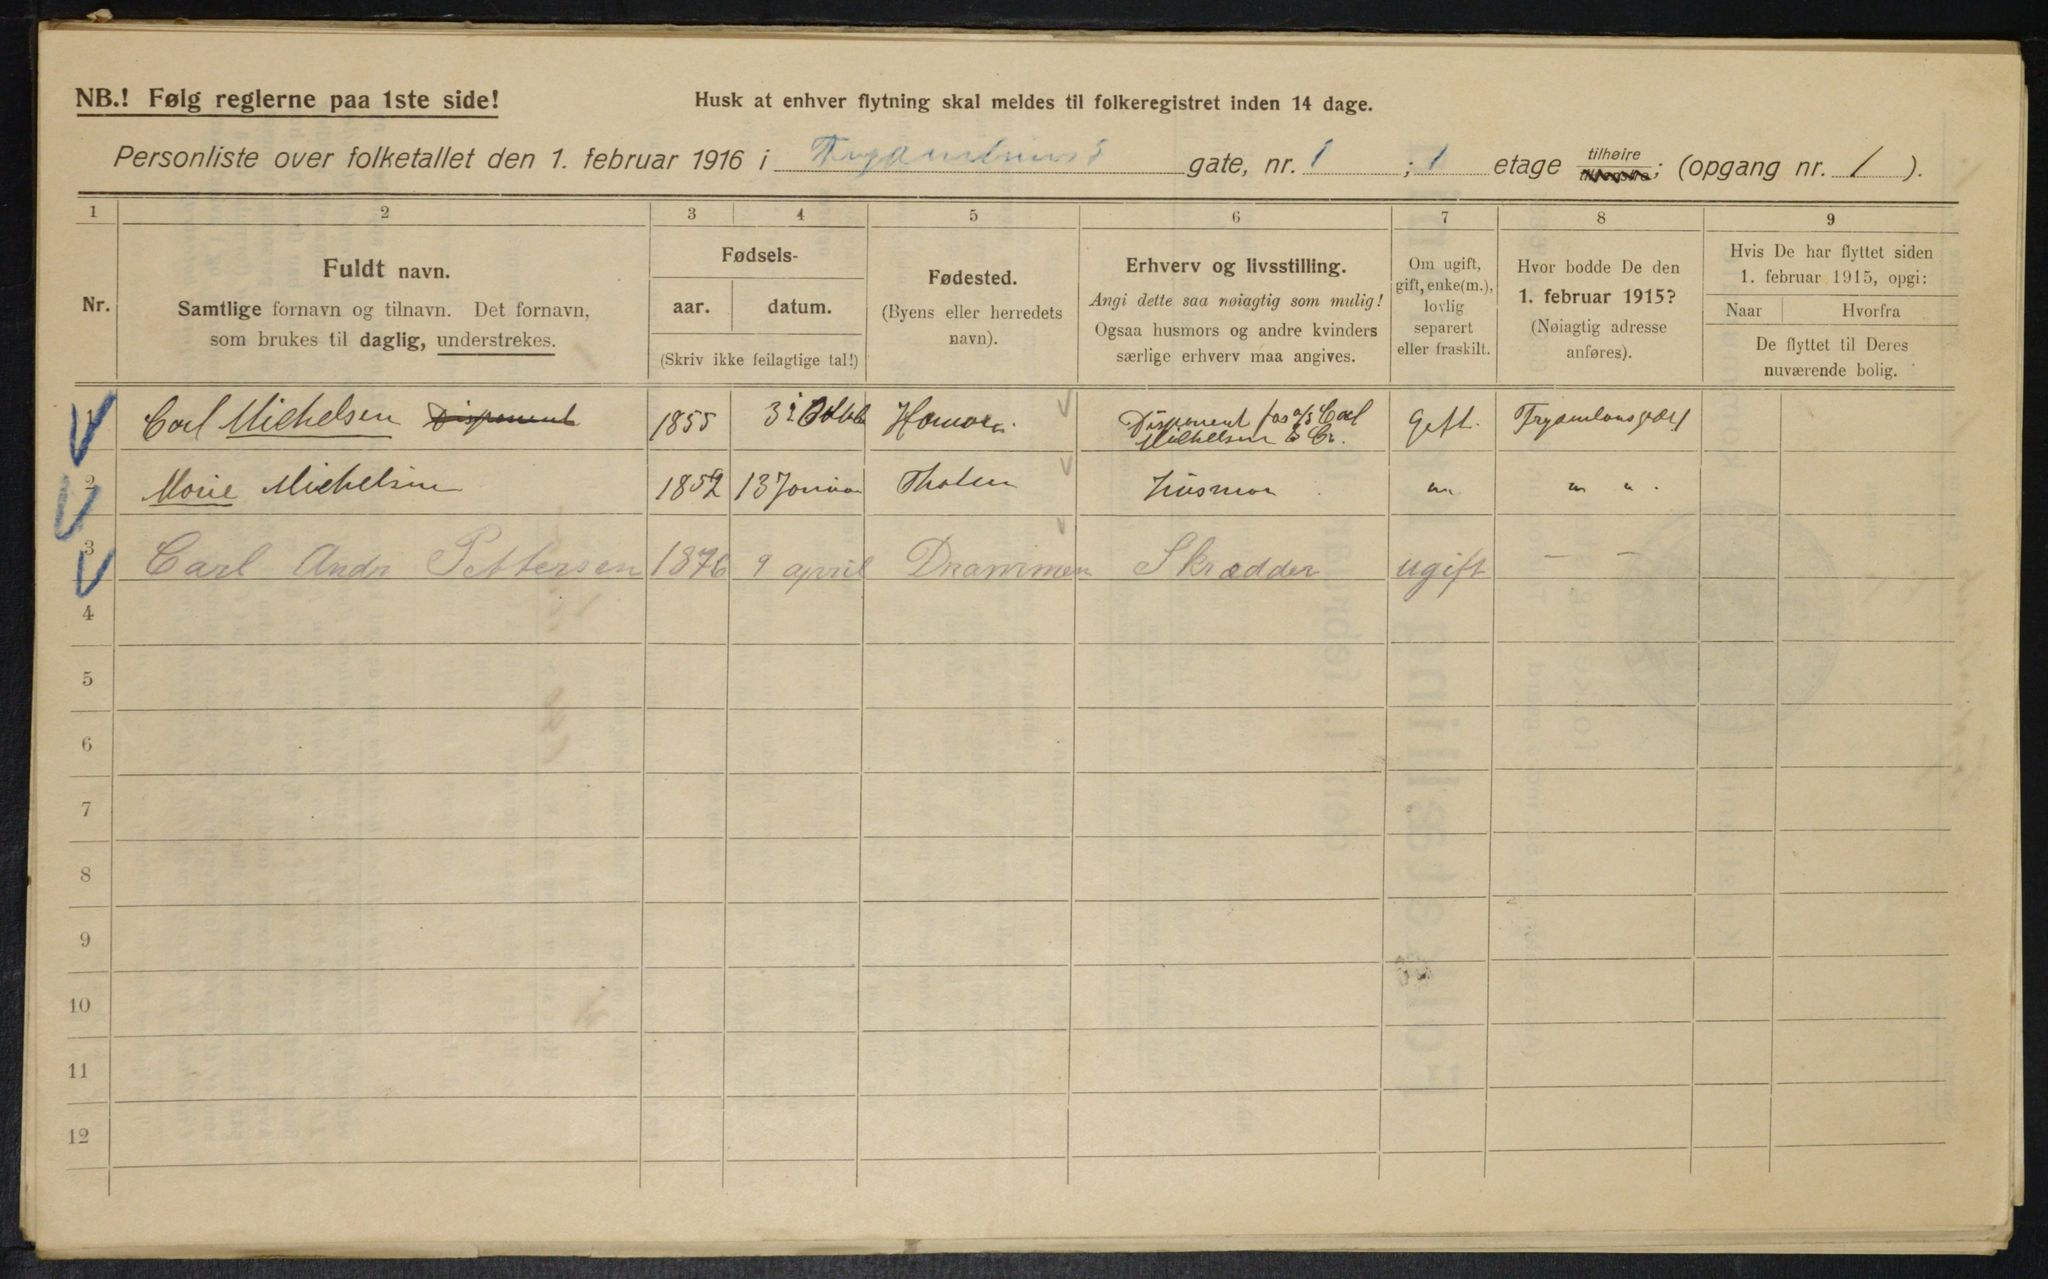 NB.! Følg reglerne paa 1ste side!
Husk at enhver flytning skal meldes til folkeregistret inden 14 dage.
Personliste over folketallet den 1. februar 1916 i gate, nr. 1 ; 1 etage tilhøire ; (opgang nr. 1 ).
1 2 3 4 5 6 7 8 9
Nr.
Fuldt navn.
Samtlige fornavn og tilnavn. Det fornavn,
som brukes til daglig, understrekes.
Fødsels-
aar. datum.
(Skriv ikke feilagtige tal!)
Fødested.
(Byens eller herredets
navn).
Erhverv og livsstilling.
Angi dette saa nøiagtig som mulig!
Ogsaa husmors og andre kvinders
særlige erhverv maa angives.
Om ugift,
gift, enke(m.),
lovlig
separert
eller fraskilt.
Hvor bodde De den
1. februar 1915?
(Nøiagtig adresse
anføres).
Hvis De har flyttet siden
1. februar 1915, opgi:
Naar Hvorfra
De flyttet til Deres
nuværende bolig.
1 Carl Michelsen Disponent 1855 Disponent for a/s Carl Gift
Michelsen & Co.
2 Marie Michelsen 1852 13 Januar Husmor " " "
3 Carl Andr Pettersen 1876 9 april Drammen Skrædder ugift — —
4
5
6
7
8
9
10
11
12